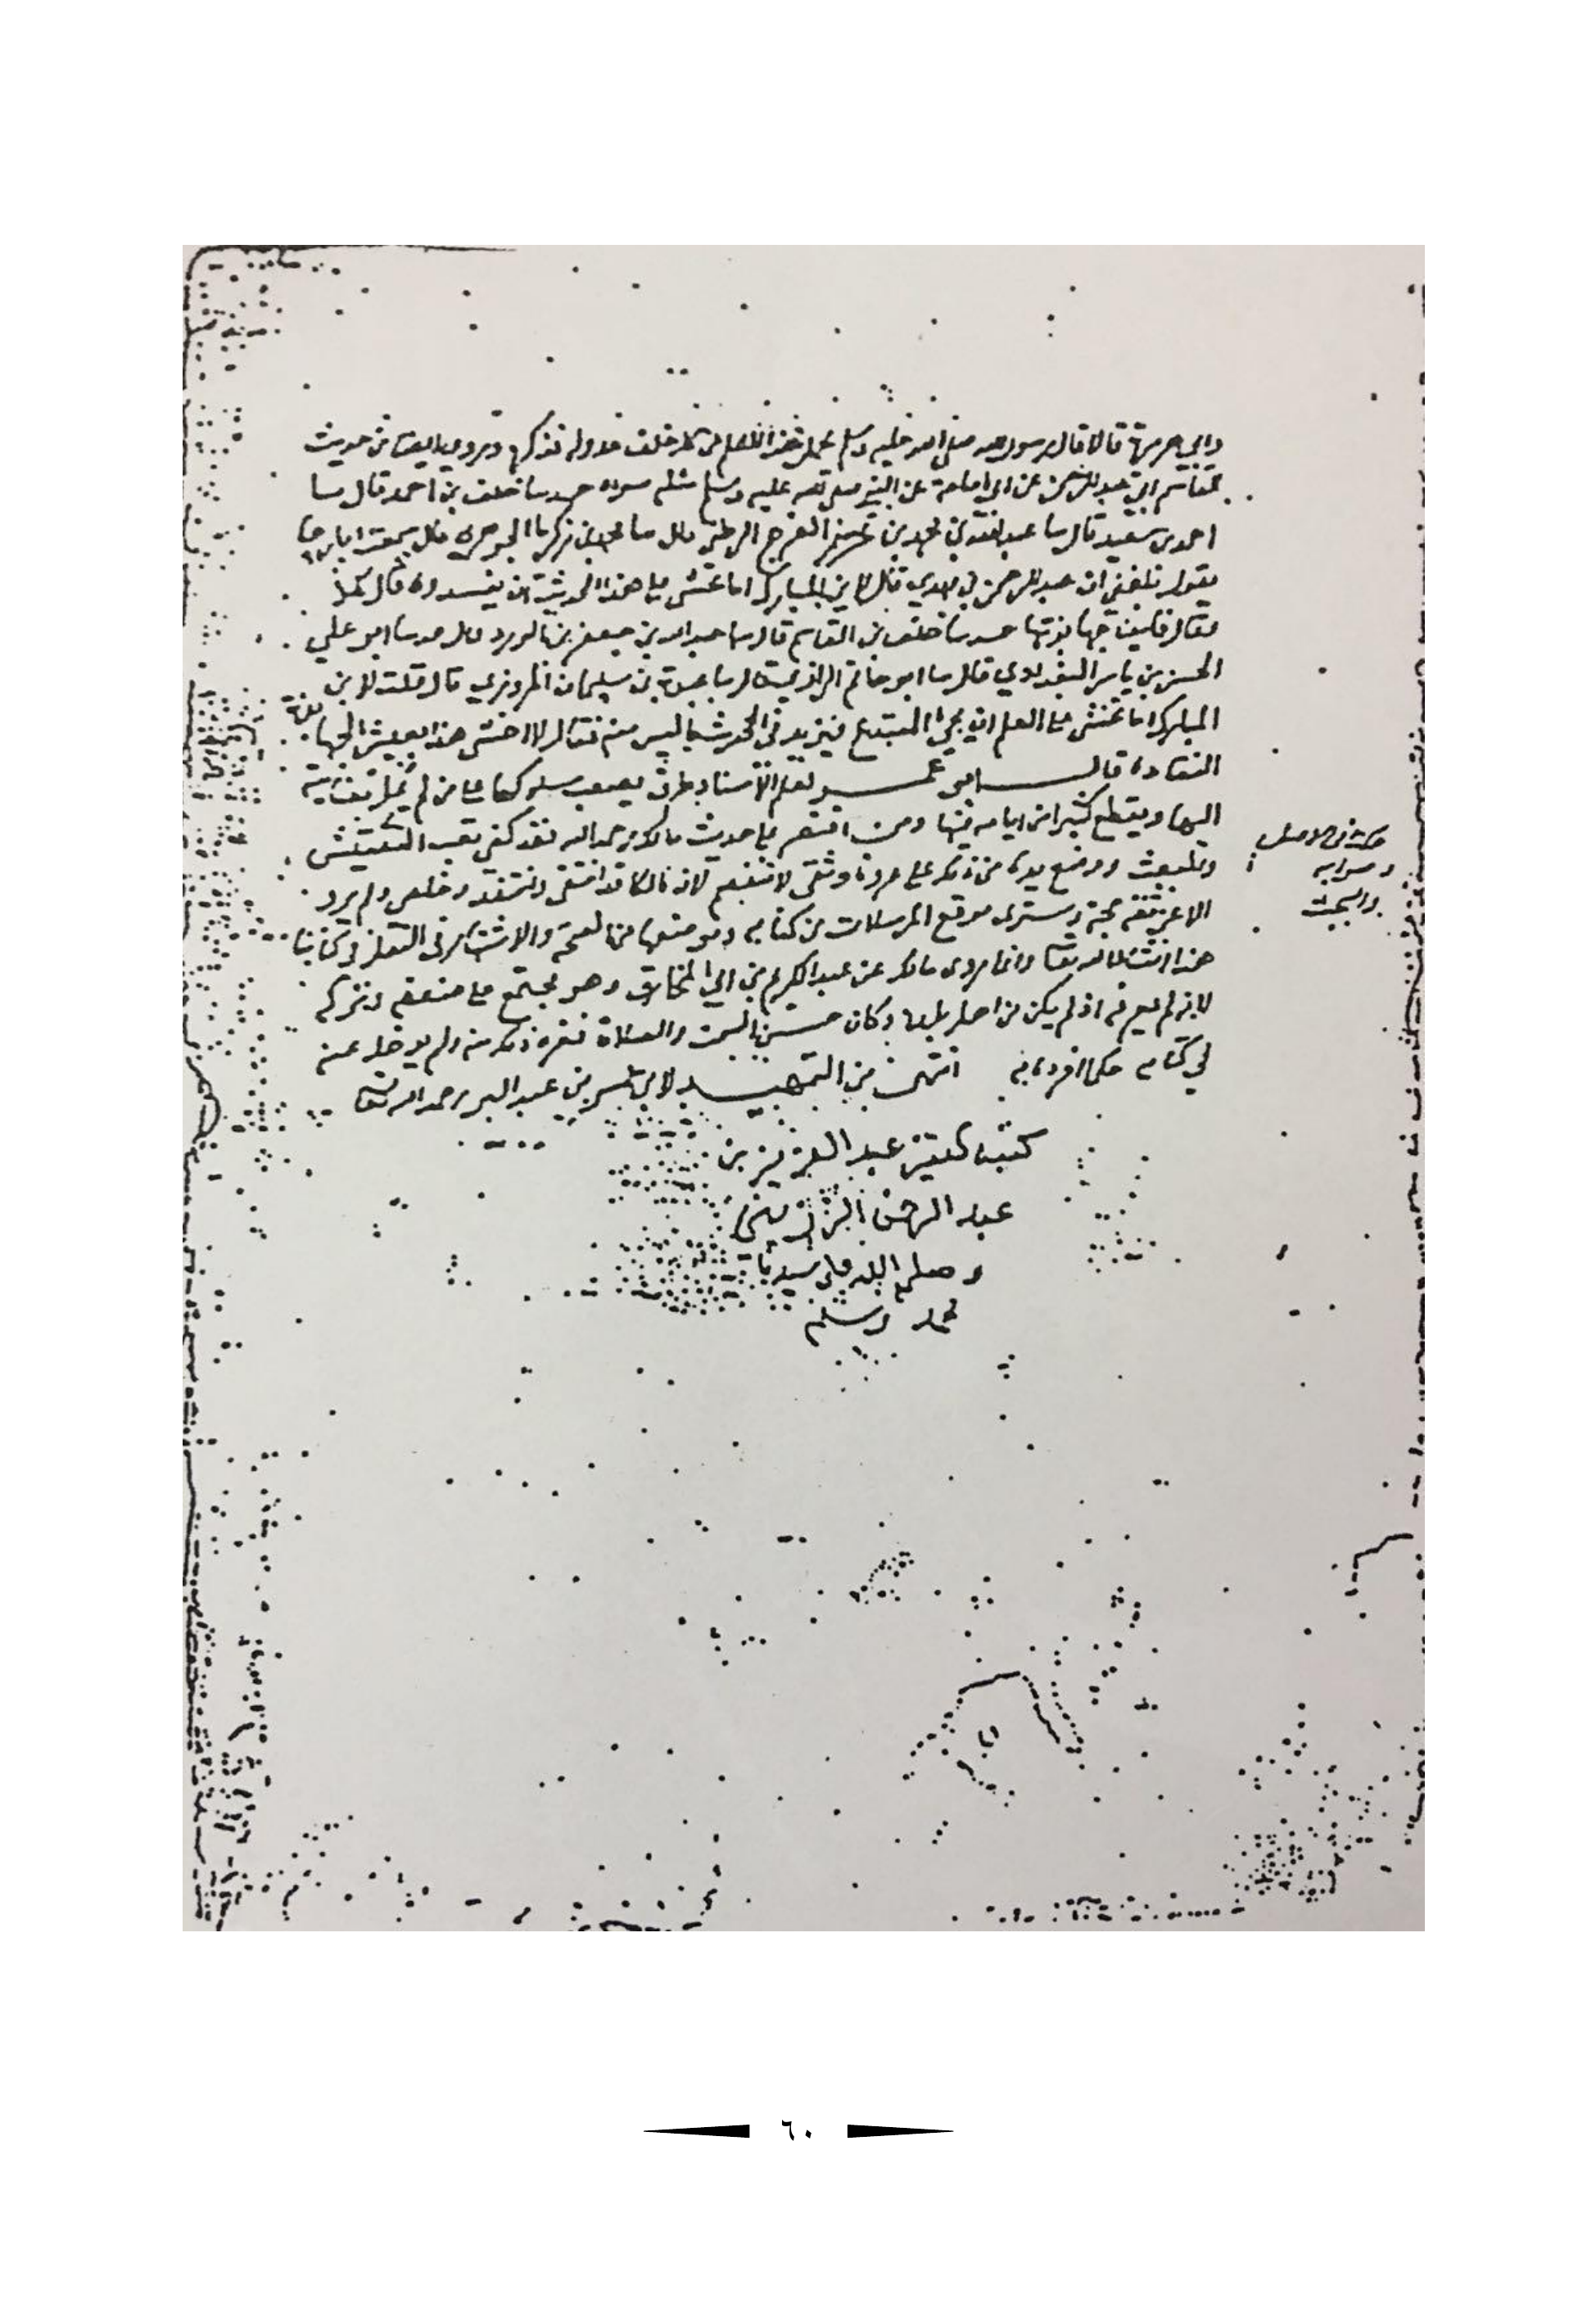 وابي هريرة قالا قال رسول الله صلى الله عليه وسلم يحمل هذا العلم من كل خلف عدوله فذكره وقد روي ايضا من حديث
القاسم ابي عبد الرحمن عن ابي امامة عن النبي صلى الله عليه وسلم مثله سواء حدثنا خلف بن احمد قال نا
احمد بن سعيد قال نا محمد بن زكريا الجوهري قال سمعت ابا رجا
يقول بلغني ان عبد الرحمن بن مهدي قال لابن المبارك اما تخشى على هذا الحديث ان يفسدوه قال كلا
فقال فاين جهابذتها حدثنا خلف بن القاسم قال نا عبد الله بن جعفر بن الورد قال حدثنا ابو علي
الحسن بن ياسر البغدادي قال نا ابو حاتم الرازي قال نا عبدة بن سليمان المروزي قال قلت لابن
المبارك اما تخشى على العلم ان يجي المبتدع فيزيد في الحديث ما ليس منه فقال لا اخشى هذا بعيش الجهابذة
النقاده قال ابو عمر لعلم الاسناد طرق يصعب سلوكها على من لم يصل بعنايته
اليها ويقطع كثيرا من ايامه فيها ومن اقتصر على حديث مالك رحمه الله فقد كفي تعب التفتيش
والبحث ووضع يده من ذلك على عروة وثقى لا تنفصم لان مالكا قد انتقى وانتقد وخلص ولم يرو
الا عن ثقة حجة وسترى موقع المرسلات من كتابه وموضعها من الصحة والاشتهار في النقل في كتابنا
هذا ان شا الله تعا وانما روى مالك عن عبد الكريم بن ابي المخارق وهو مجتمع على ضعفه وتركه
لانه لم يعرفه اذ لم يكن من اهل بلده وكان حسن السمت والصلاة فغره ذلك منه ولم يدخل عنه
في كتابه حكما افرده به انتهى من التمهيد لابن عمر بن عبد البر رحمه الله تعا
كتبه الفقير عبد العزيز بن
عبد الرحمن
وصلى الله على سيدنا
محمد وسلم
كذا في الاصل
وصوابه
والبحث
٦٠